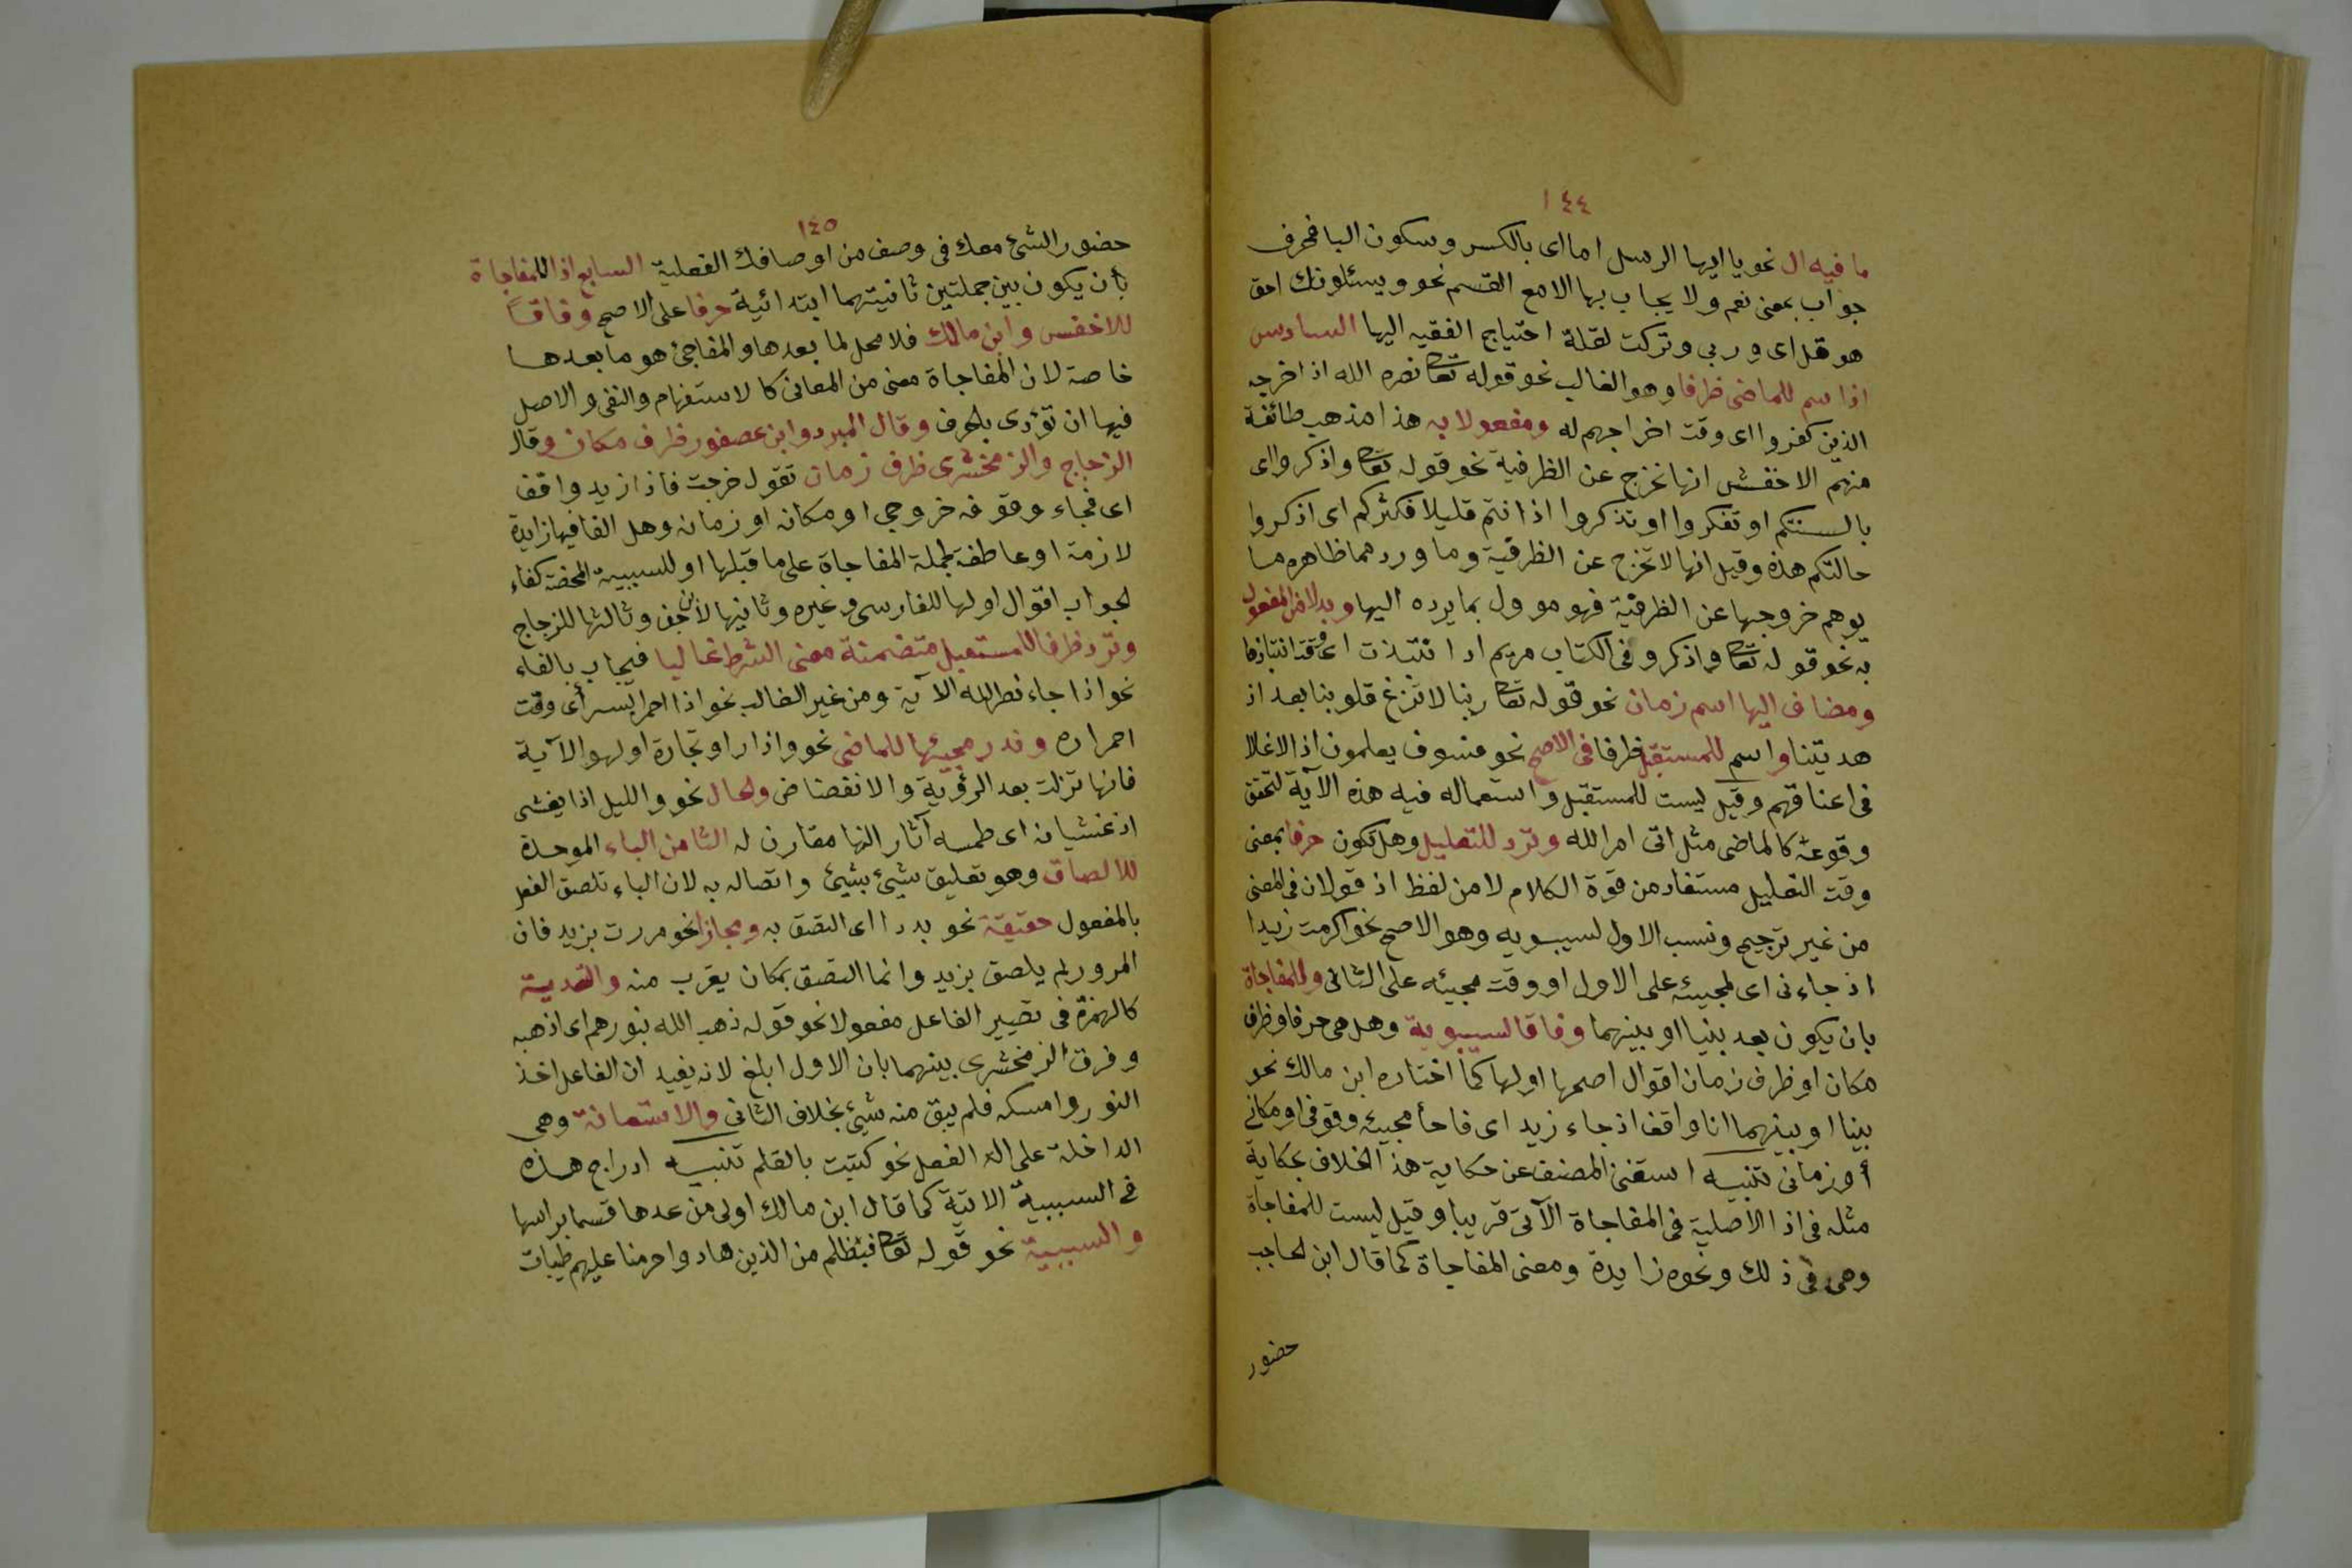 ١٤٤
ما فيه ال نحو يا ايها الرسل اما اى بالكسر وسكون اليا فحرف
جواب بمعنى نعم ولا يجاب بها الا مع القسم نحو ويسئلونك احق
هو قل اى وربي وتركت لقلة احتياج الفقيه اليها السادس
اذ اسم للماضى ظرفا وهو الغالب نحو قوله تعا نصره الله اذ اخرجه
الذين كفروا اى وقت اخراجهم له ومفعولا به هذا مذهب طائفة
منهم الاخفش انها تخرج عن الظرفية نحو قوله تعا واذكروا اى
بالسنتكم او تفكروا او تذكروا اذ انتم قليلا فكثركم اى اذكروا
حالتكم هذه وقيل انها لا تخرج عن الظرفية وما ورد مما ظاهره ما
يوهم خروجها عن الظرفية فهو موول بما يرده اليها وبدلا من المفعول
به نحو قوله تعا واذكر و فى الكتاب مريم اذ انتبذت اى وقت انتباذها
ومضاف اليها اسم زمان نحو قوله تعا ربنا لا تزغ قلوبنا بعد اذ
هديتنا واسم للمستقبل ظرفا فى الاصح نحو فسوف يعلمون اذ الاغلال
فى اعناقهم وقيل ليست للمستقبل واستعماله فيه هذه الآية لتحقق
وقوعه كالماضى مثل اتى امر الله وترد للتعليل وهل تكون حرفا بمعنى
وقت التعليل مستفاد من قوة الكلام لا من لفظ اذ قولان فى المعنى
من غير ترجيح ونسب الاول لسيبويه وهو الاصح نحو اكرمت زيدا
اذ جاءنى اى لمجيئه على الاول او وقت مجيئه على الثانى وللمفاجاة
بان يكون بعد بينا او بينهما وفاقا لسيبوية وهل هى حرف او ظرف
مكان او ظرف زمان اقوال اصحها اولها كما اختاره ابن مالك نحو
بينا او بينهما انا واقف اذ جاء زيد اى فاجأ مجيئه وقوفى او مكانى
أو زمانى تنبيه استغنى المصنف عن حكاية هذ الخلاف بحكاية
مثله فى اذا الاصلية فى المفاجاة الآتى قريبا وقيل ليست للمفاجاة
وهى فى ذلك ونحوه زايدة ومعنى المفاجاة كما قال ابن الحاجب
حضور
١٤٥
حضور الشئ معك فى وصف من اوصافك الفعلية السابع اذا للمفاجاة
بأن يكون بين جملتين ثانيتهما ابتدائية حرفا على الاصح وفاقاً
للاخفش وابن مالك فلا محل لما بعدها والمفاجئ هو ما بعدها
خاصة لان المفاجاة معنى من المعانى كالاستفهام والنفى والاصل
فيها ان تؤدى بالحرف وقال المبرد وابن عصفور ظرف مكان وقال
الزجاج والزمخشرى ظرف زمان تقول خرجت فاذا زيد واقف
اى فجاء وقوفه خروجي او مكانه او زمانه وهل الفا فيها زايدة
لازمة او عاطفة لجملة المفاجاة على ما قبلها او للسببية المحضة كفاء
لجواب اقوال اولها للفارسى وغيره وثانيها لابن جنى وثالثها للزجاج
وترد ظرفا للمستقبل متضمنة معنى الشرط غالبا فيجاب بالفاء
نحو اذا جاء نصر الله الآية ومن غير الغالب نحو اذا احمر البسر أى وقت
احمراره وندر مجيئها للماضى نحو واذا راو تجارة او لهو الآية
فانها نزلت بعد الرؤية والانفضاض ولحال نحو والليل اذا يغشى
اذ غشيانه اى طمسه آثار النها مقارن له الثامن الباء الموحدة
للالصاق وهو تعليق شئ بشيئ واتصاله به لان الباء تلصق الفعل
بالمفعول حقيقة نحو بدا اى التصق به ومجازا نحو مررت بزيد فان
المرور لم يلصق بزيد وانما التصق بمكان يقرب منه والتعدية
كالهمزة فى تصيير الفاعل مفعولا نحو قوله ذهب الله بنورهم اى اذهبه
وفرق الزمخشرى بينهما بان الاول ابلغ لانه يفيد ان الفاعل اخذ
النور وامسكه فلم يبق منه شيئ بخلاف الثانى والاستعانة وهى
الداخلة على الة الفعل نحو كتبت بالقلم تنبيه ادراج هذه
فى السببية الاتية كما قال ابن مالك اولى من عدها قسما براسها
والسببية نحو قوله تعا فبظلم من الذين هادوا حرمنا عليهم طيبات